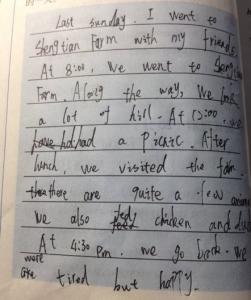 Last sunday. I went to
Shengtian Farm with my friends
At 8:00, We went to Shengtian
Farm. Along the way, We
a lot of hill. At 12:00. we
had a picnic. After
lunch, we visited the farm.
there are quite a few
We also chicken and
At 4:30 pm. we go back. we
were
tired but happy.